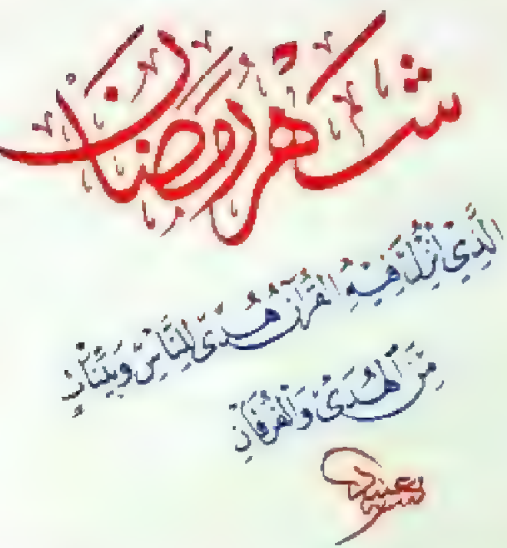 شَهْرُ رَمَضَان
الَّذِي أُنْزِلَ فِيهِ الْقُرْآنُ هُدًى لِلنَّاسِ وَبَيِّنَاتٍ
مِنَ الْهُدَىٰ وَالْفُرْقَانِ